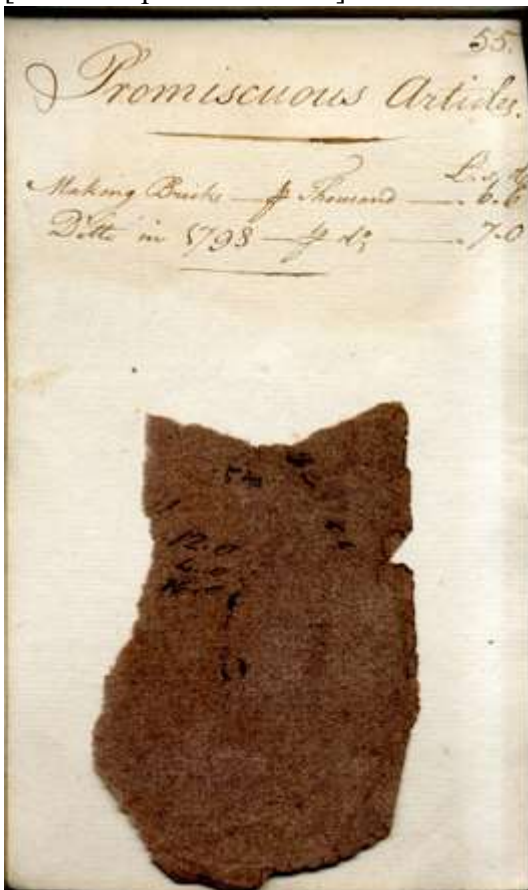 55.
Promiscuous Articles.
L. s. d
Making Bricks — ⅌ Thousand — . 6.6
Ditto in 1798 — ⅌ do — . 7.0
12.0